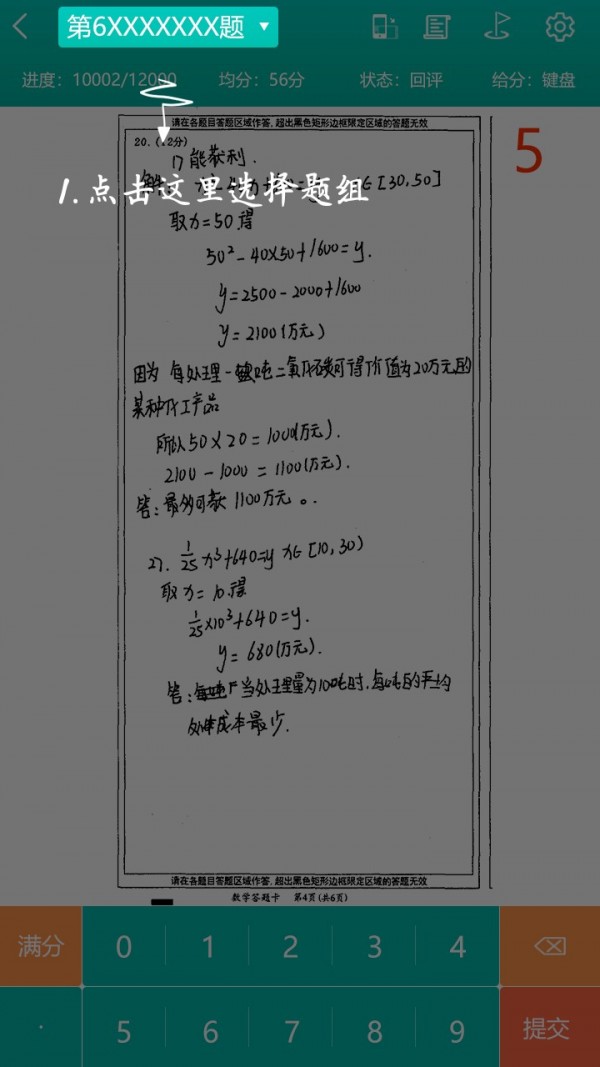 第6XXXXXXX题
进度：10002/12000 均分：56分 状态：回评 给分：键盘
请在各题目答题区域作答，超出黑色矩形边框限定区域的答题无效
20.(12分)
5
1）能获利.
[30,50]
1.点击这里选择题组
取x=50得
50²-40×50+1600=y.
y=2500-2000+1600
y=2100(万元)
因为 每处理一吨二氧化碳可得价值为20万元的
某种化工产品
所以50×20=1000(万元).
2100-1000=1100(万元).
答:最多可获1100万元。
2). 1/25 x³+640=y x∈[10,30)
取x=10.得
1/25×10³+640=y.
y=680(万元).
答:当处理量为10吨时,每吨的平均
成本最少.
请在各题目答题区域作答，超出黑色矩形边框限定区域的答题无效
数学答题卡 第4页(共6页)
满分 0 1 2 3 4
. 5 6 7 8 9 提交